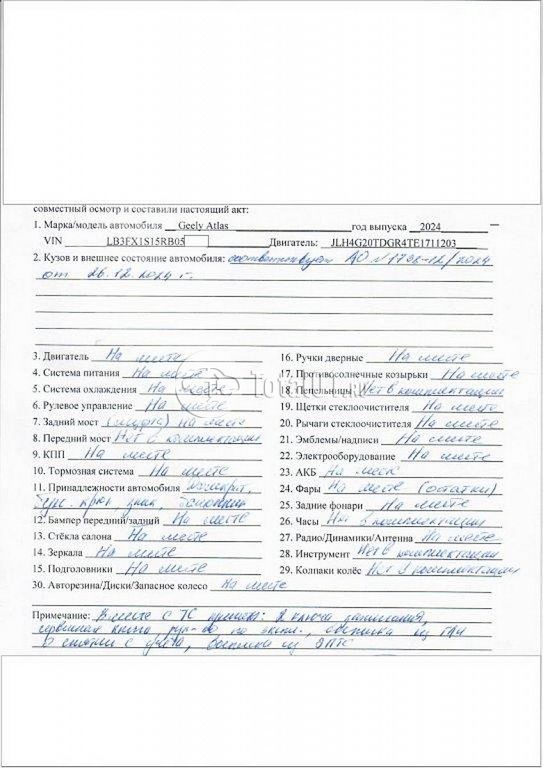 совместный осмотр и составили настоящий акт:
1. Марка/модель автомобиля Geely Atlas год выпуска 2024
VIN LB3FX1S15RB05 Двигатель: JLH4G20TDGR4TE1711203
2. Кузов и внешнее состояние автомобиля: соответствует АО №1798-12/2024
от 26.12.2024 г.
3. Двигатель На месте
4. Система питания На месте
5. Система охлаждения На месте
6. Рулевое управление На месте
7. Задний мост На месте
8. Передний мост Нет в комплектации
9. КПП На месте
10. Тормозная система На месте
11. Принадлежности автомобиля домкрат,
букс. крюк, знак, балонник
12. Бампер передний/задний На месте
13. Стёкла салона На месте
14. Зеркала На месте
15. Подголовники На месте
16. Ручки дверные На месте
17. Противосолнечные козырьки На месте
18. Пепельницы Нет в комплектации
19. Щетки стеклоочистителя На месте
20. Рычаги стеклоочистителя На месте
21. Эмблемы/надписи На месте
22. Электрооборудование На месте
23. АКБ На месте
24. Фары На месте (остатки)
25. Задние фонари На месте
26. Часы Нет в комплектации
27. Радио/Динамики/Антенна На месте
28. Инструмент Нет в комплектации
29. Колпаки колёс Нет в комплектации
30. Авторезина/Диски/Запасное колесо На месте
Примечание: Вместе с ТС приняты: 2 ключа зажигания,
сервисная книга, рук-во по экспл.,
о снятии с учёта, выписка из ЭПТС
TotalCar